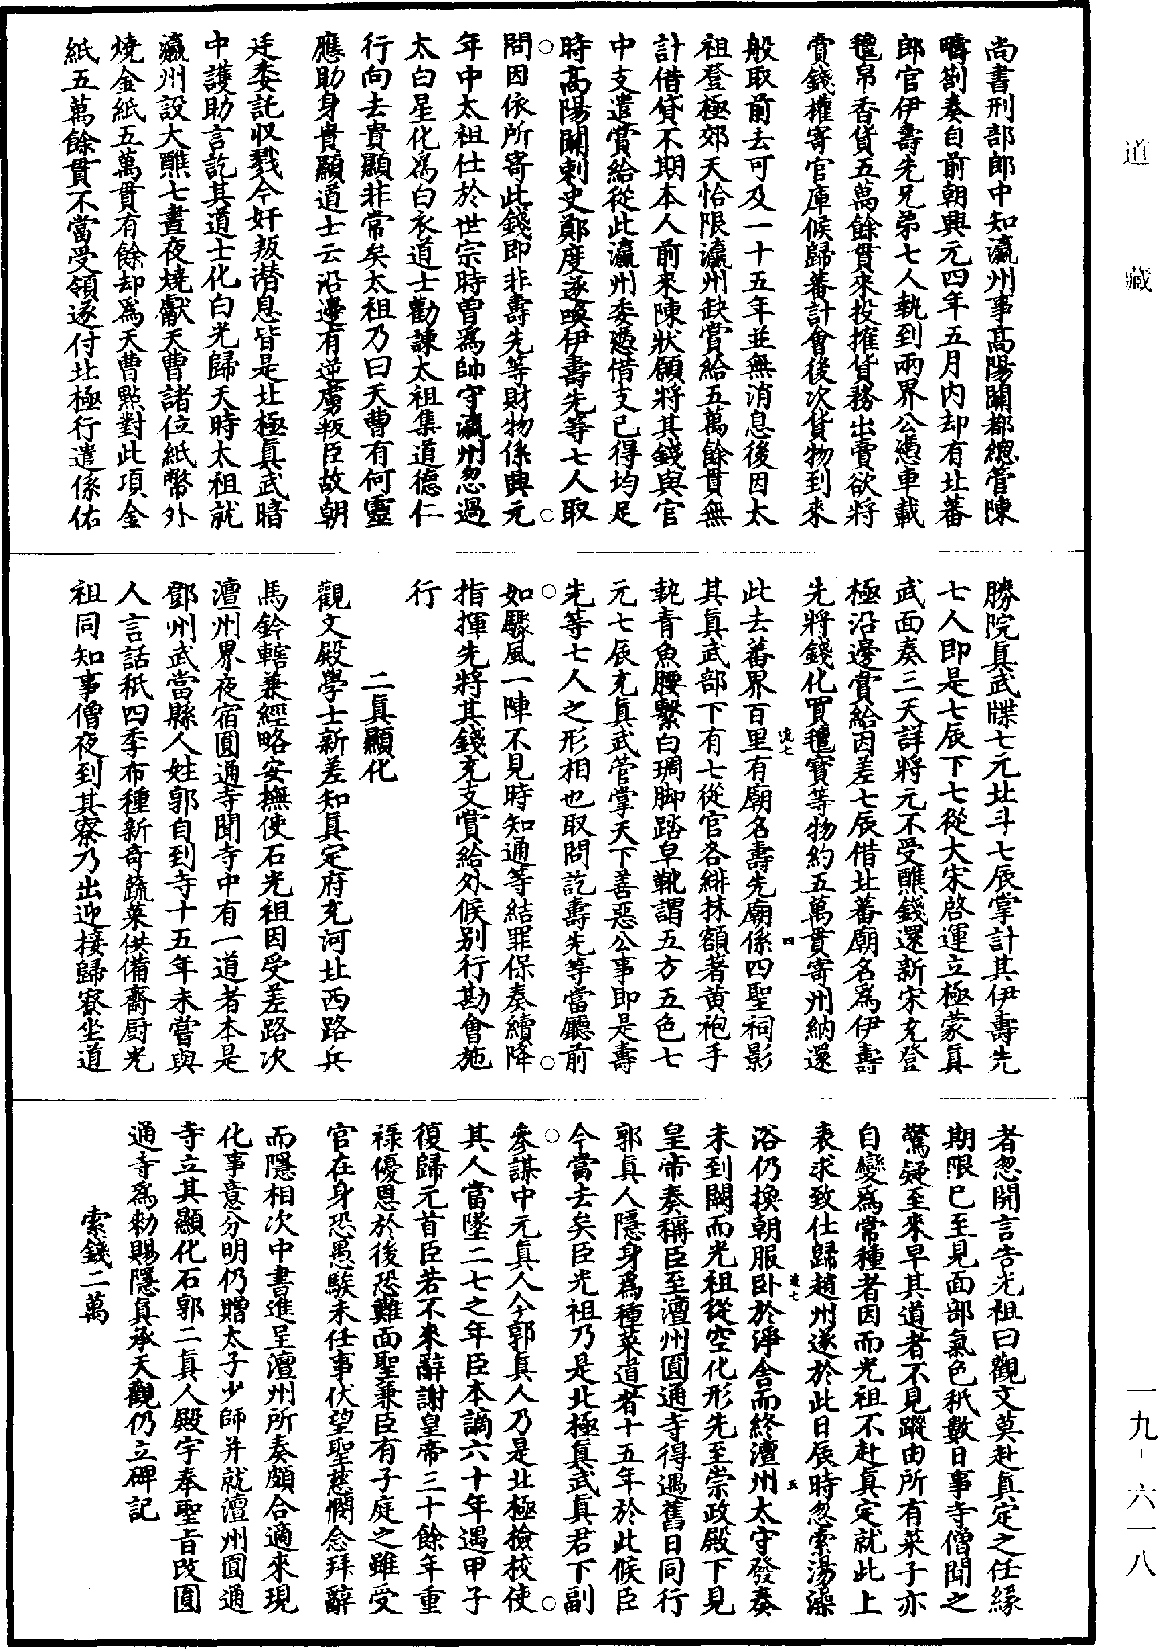 尚書刑部郎中知瀛州事高陽關都總管陳
疇劄奏自前朝興元四年五月內却有北蕃
郎官伊壽先兄弟七人執到兩界公憑車載
氊帛香貨五萬餘貫來投搉貨務出賣欲將
賣錢權寄官庫候歸蕃計會後次貨物到來
般取前去可及一十五年並無消息後因太
祖登極郊天恰限瀛州缺賞給五萬餘貫無
計借貸不期本人前來陳狀願將其錢與官
中支遣賞給從此瀛州委憑借支已得均足
時高陽關刺史鄭度遂喚伊壽先等七人取
問因依所寄此錢即非壽先等財物係興元
年中太祖仕於世宗時曾爲帥守瀛州忽過
太白星化爲白衣道士勸諫太祖集道德仁
行向去貴顯非常矣太祖乃曰天曹有何靈
應助身貴顯道士云沿邊有逆虜叛臣故朝
廷委託収戮今奸叛潛息皆是北極真武暗
中護助言訖其道士化白光歸天時太祖就
瀛州設大醮七晝夜燒獻天曹諸位紙幣外
燒金紙五萬貫有餘却爲天曹點對此項金
紙五萬餘貫不當受領遂付北極行遣係佑
勝院真武牒七元北斗七辰掌計其伊壽先
七人即是七辰下七從大宋啓運立極蒙真
武面奏三天詳將元不受醮錢還新宋充登
極沿邊賞給因差七辰借北蕃廟名爲伊壽
先將錢化買氊寶等物約五萬貫寄州納還
此去蕃界百里有廟名壽先廟係四聖祠影
其真武部下有七從官各緋抹額著黃袍手
執青魚腰繫白捐脚踏皁靴謂五方五色七
元七辰充真武管掌天下善惡公事即是壽
先等七人之形相也取問訖壽先等當廳前
如驟風一陣不見時知通等結罪保奏續降
指揮先將其錢充支賞給外候別行勘會施
行
二真顯化
觀文殿學士新差知真定府充河北西路兵
馬鈐轄兼經略安撫使石光祖因受差路次
澶州界夜宿圓通寺聞寺中有一道者本是
鄧州武當縣人姓郭自到寺十五年未嘗與
人言話秖四季布種新奇蔬菜供備齋厨光
祖同知事僧夜到其寮乃出迎接歸寮坐道
者忽開言告光祖曰觀文莫赴真定之任緣
期限已至見面部氣色秖數日事寺僧聞之
驚疑至來早其道者不見蹤由所有菜子亦
自變爲常種者因而光祖不赴真定就此上
表求致仕歸趙州遂於此日辰時忽索湯澡
浴仍換朝服卧於淨舍而終澶州太守發奏
未到闕而光祖從空化形先至崇政殿下見
皇帝奏稱臣至澶州圓通寺得遇舊日同行
郭真人隱身爲種菜道者十五年於此候臣
今當去矣臣光祖乃是北極真武真君下副
參謀中元真人今郭真人乃是北極撿挍使
其人當墜二七之年臣本謫六十年遇甲子
復歸元首臣若不來辭謝皇帝三十餘年重
祿優恩於後恐難面聖兼臣有子庭之雖受
官在身恐愚騃未任事伏望聖慈憫念拜辭
而隱相次中書進呈澶州所奏頗合適來現
化事意分明仍贈太子少師并就澶州圓通
寺立其顯化石郭二真人殿宇奉聖旨改圓
通寺爲勑賜隱真承天觀仍立碑記
索錢二萬
道藏
一九-六一八